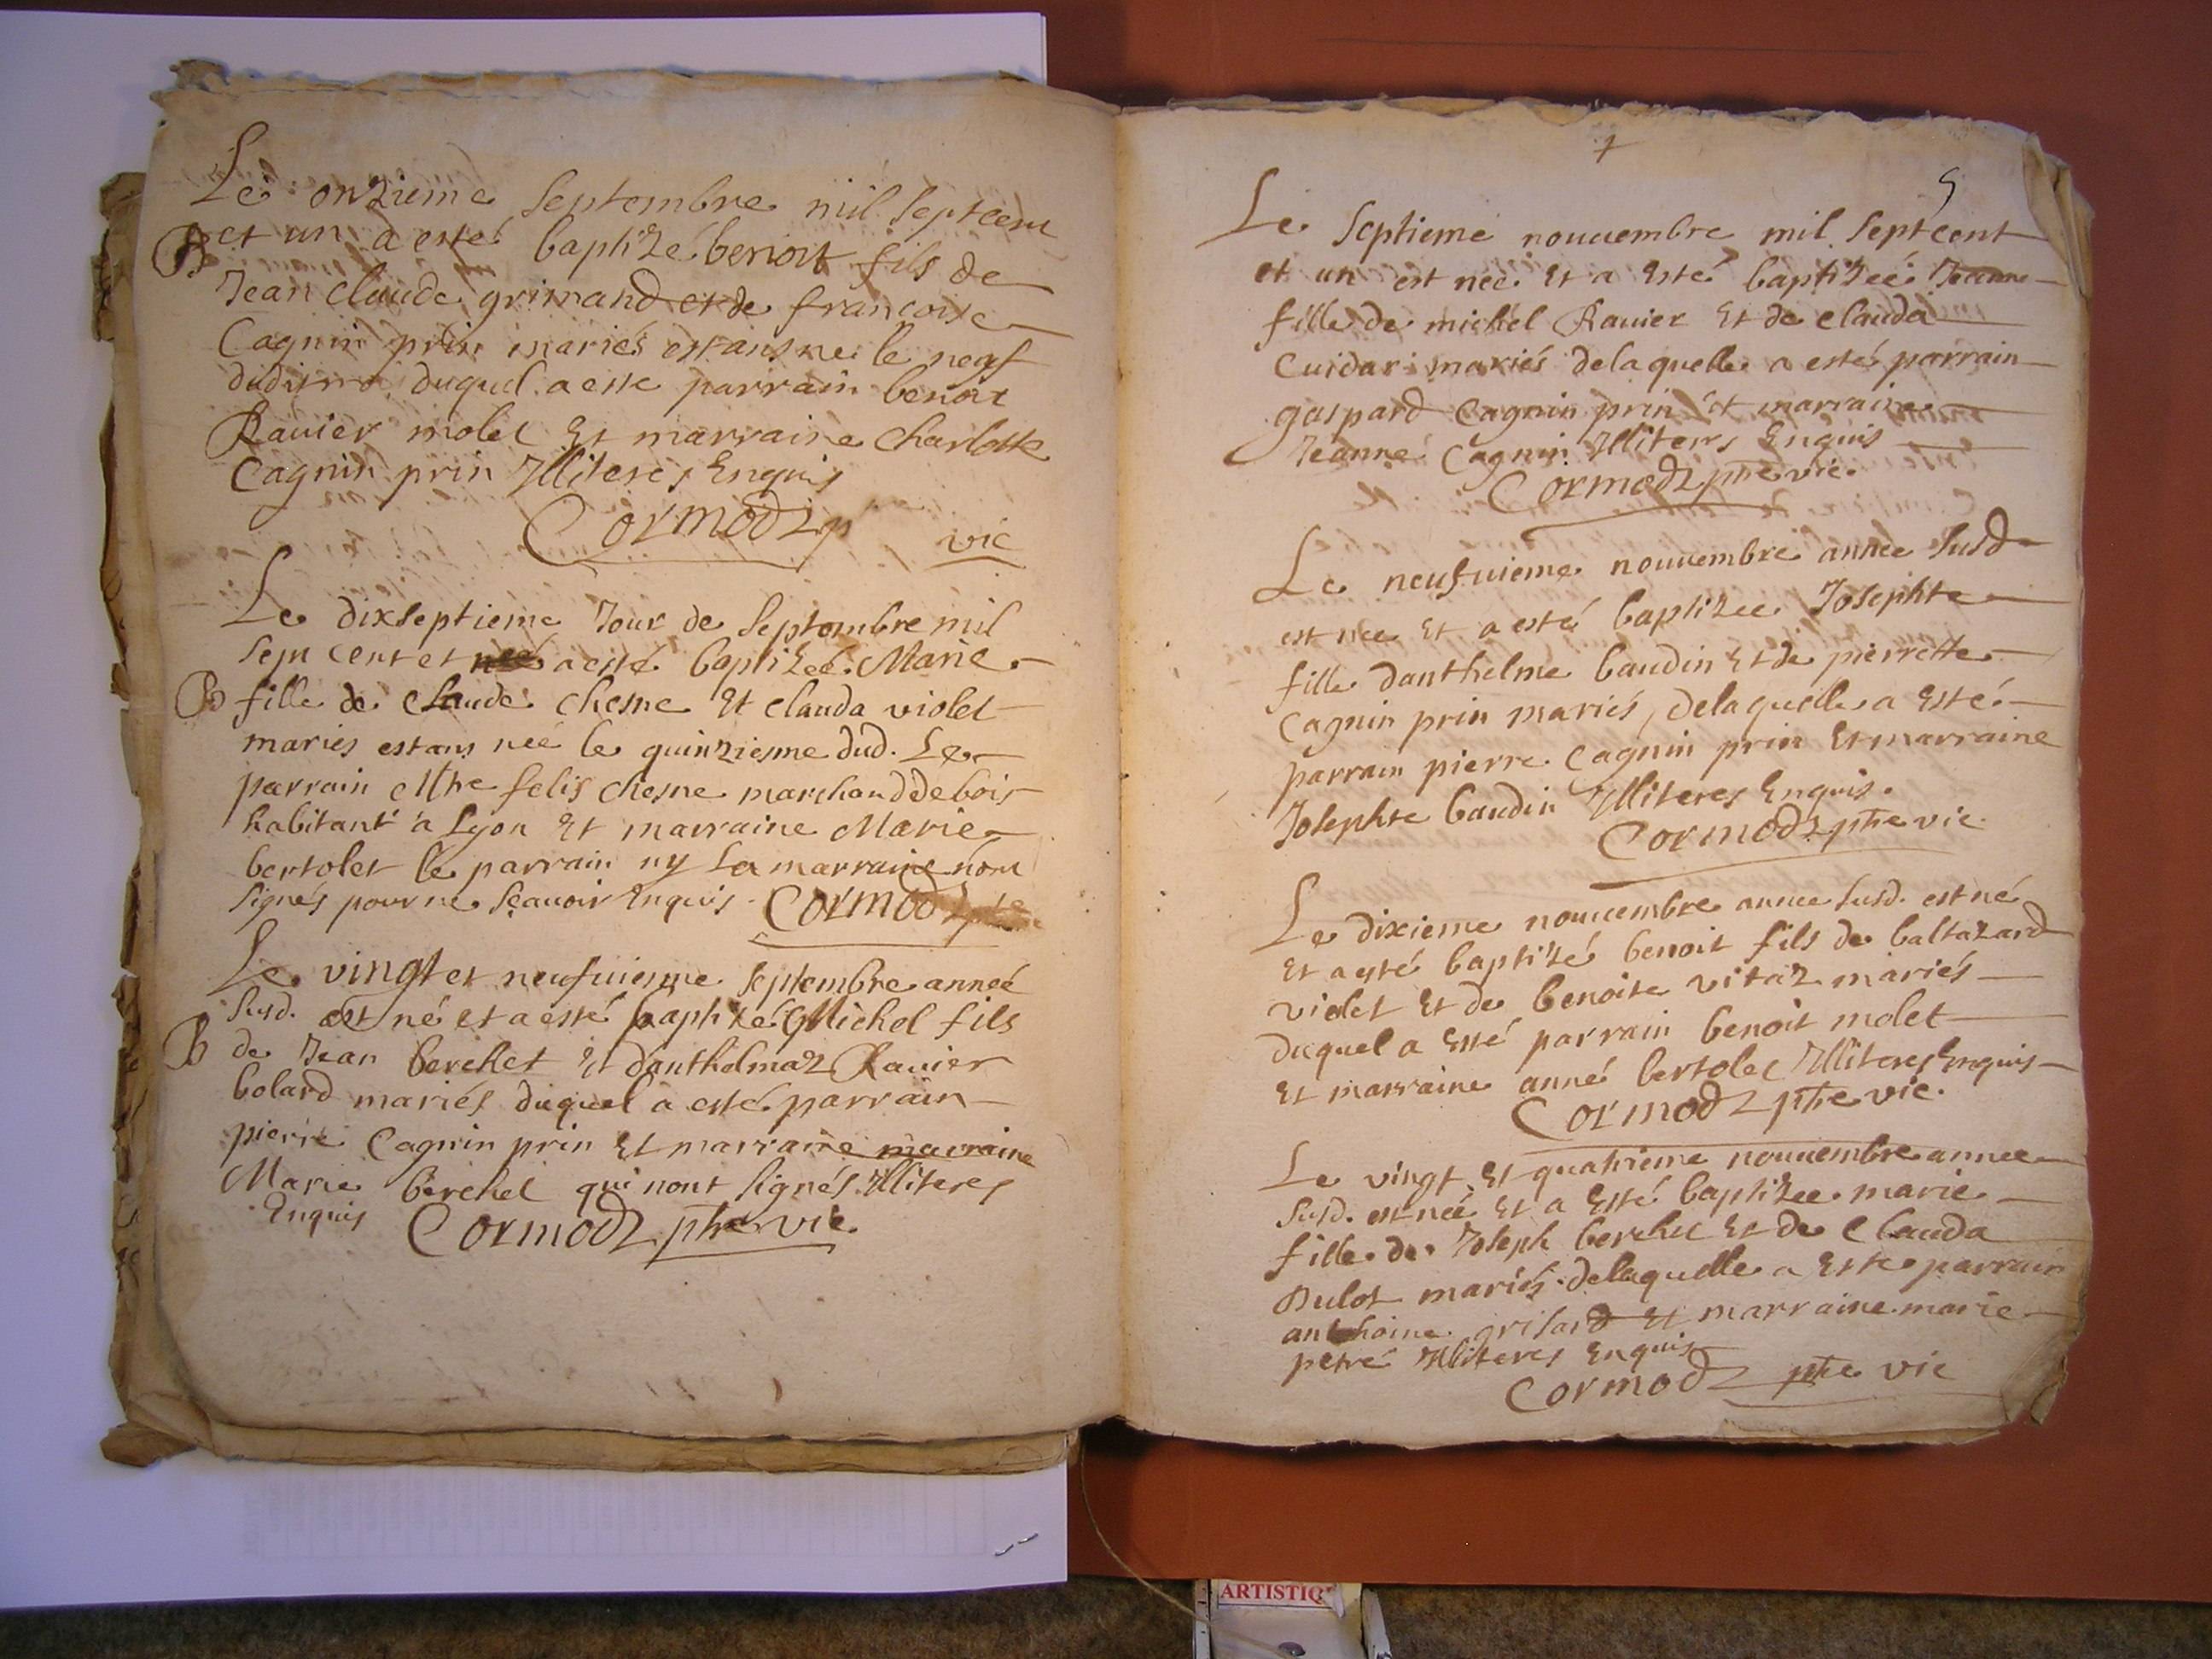 Le onzieme Septembre mil Septcent
B et un a esté baptizé benoit fils de
Jean claude grimand et de francoise
Cagnin prin mariés estans ne le neuf
dudit duquel a esté parrain benoit
Ravier molet Et marraine Charlotte
Cagnin prin Illiteres Enquis
Cormodz p vic
Le dixseptieme Jour de Septembre mil
sept cent et a esté baptizeé Marie
B fille de claude chesne Et clauda violet
mariés estans neé le quinziesme dud. Le
parrain Mtre felis chesne marchand de bois
habitant a Lyon Et marraine Marie
bertolet le parrain ny La marraine nont
signés pour ne sçavoir Enquis. Cormodz
Le vingt et neufuiesme septembre anneé
susd. est né et a esté baptizé Michel fils
B de Jean berchet Et danthelmaz Ravier
bolard mariés duquel a esté parrain
pierre Cagnin prin Et marraine marraine
Marie berchet qui nont signés Illiteres
Enquis Cormodz ptre vic.
5
Le Septieme nouuembre mil Septcent
et un est neé Et a Esté baptizeé Jeanne
fille de michel Ravier Et de clauda
Cuidar mariés delaquelle a esté parrain
gaspard Cagnin prin et marraine
Jeanne Cagnin Illiteres Enquis
Cormodz ptre vic.
Le neufuieme nouuembre anneé susd
est neé Et a esté baptizee Josephte
fille danthelme baudin Et de pierrette
Cagnin prin mariés, delaquelle a Esté
parrain pierre Cagnin prin Et marraine
Josephte baudin Illiteres Enquis.
Cormodz ptre vic.
Le dixieme nouuembre annee susd. est né
Et a esté baptizé benoit fils de baltazard
violet Et de benoite vitaz mariés
duquel a Esté parrain benoit molet
Et marraine anne bertolet Illiteres Enquis
Cormodz ptre vic.
Le vingt Et quatrieme nouuembre annee
susd. est neé Et a Esté baptizee marie
fille de Joseph berchet Et de Clauda
Dulot mariés delaquelle a Esté parrain
anthoine grisard Et marraine marie
petre Illiteres Enquis
Cormodz ptre vic
ARTISTIQ